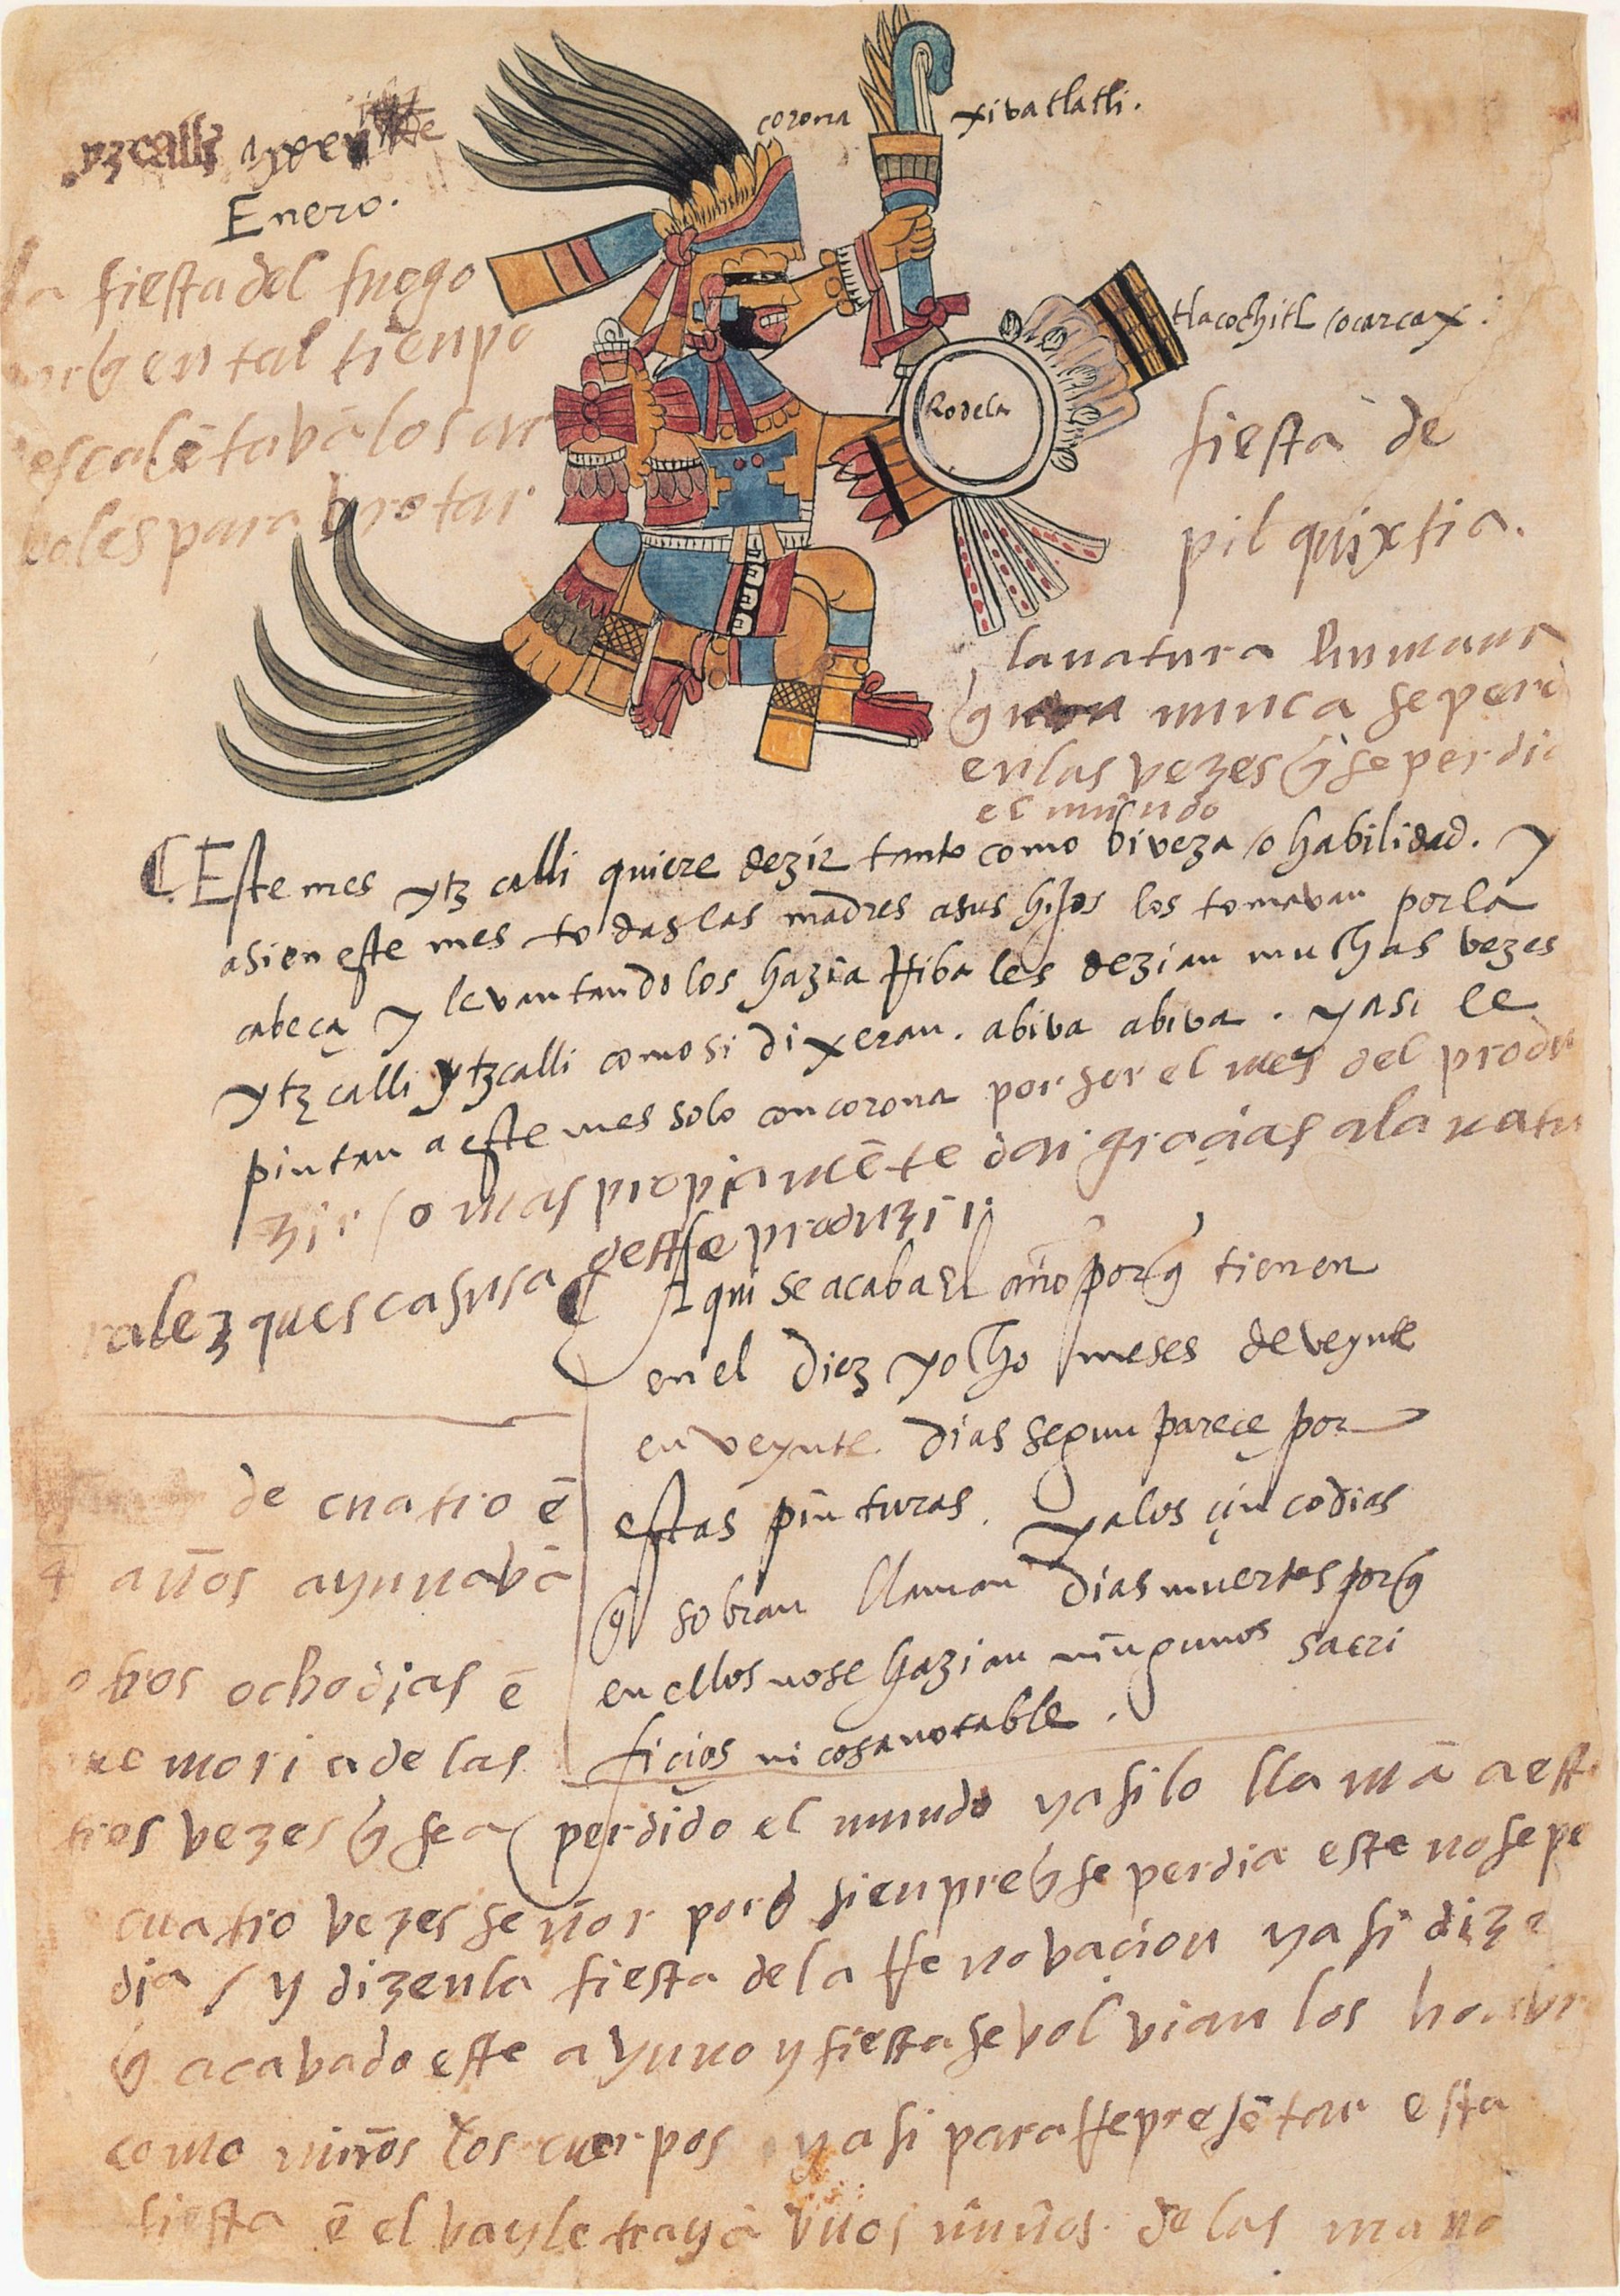 yzcalli
Enero.
la fiesta del fuego
porq̃ en tal tienpo
escalẽtavã los ar
boles para brotar
corona
xivatlatli.
tlacochitl / o carcax:
Rodela
fiesta de
pilquixtia.
la natura humana
q̃ nunca se perd
en las vezes q̃ se perdio
el mũndo
Este mes ytzcalli quiere dezir tanto como biveza / o habilidad. y
asi en este mes todas las madres a sus hijos los tomavan por la
cabeça y levantandolos hazia rriba les dezian muchas vezes
ytzcalli ytzcalli como si dixeran. abiva abiva. y asi le
pintan a este mes solo con corona por ser el mes del produ
zir / o mas propiamẽte dar graçias a la natu
ralez ques casusa deste produzir
Aqui se acaba el año porq̃ tienen
en el diez y ocho meses de veynte
en veynte dias segun pareçe por
estas pinturas. y a los çinco dias
q̃ sobran llaman dias muertos porq̃
en ellos no se hazian ningunos sacri
fiçios ni cosa notable.
de cuatro ẽ
4 años ayunavã
otros ocho dias ẽ
memoria de las
tres vezes q̃ se a perdido el mundo y asi lo llamã a este
cuatro vezes señor porq̃ sienpre q̃ se perdia este no se pe
dia / y dizen la fiesta de la rrenovaçion y asi dize
q̃ acavado este ayuno y fiesta se volvian los honbr
como niños los cuerpos y asi para rrepresẽtar esta
fiesta ẽ el vayle trayã vnos niños de las mano